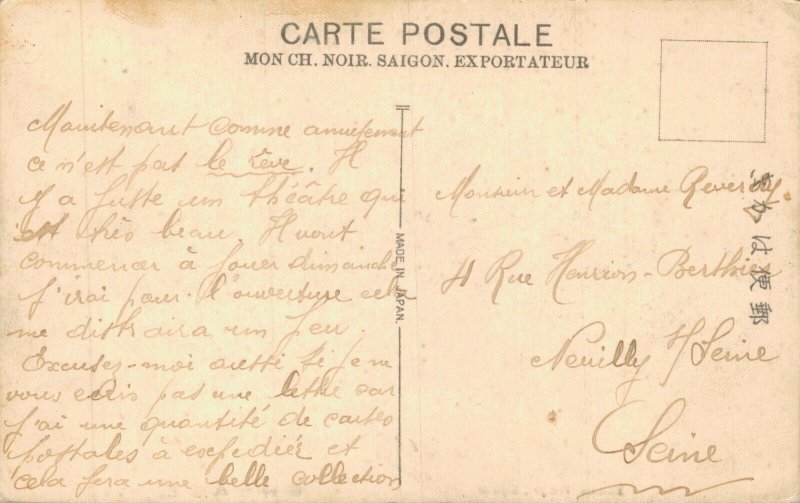 CARTE POSTALE
MON CH. NOIR. SAIGON. EXPORTATEUR
Maintenant comme amusement
ce n'est pas le rêve. Il
y a juste un théâtre qui
est très beau. Ils vont
commencer à jouer dimanche
j'irai pour l'ouverture cela
me distraira un peu
Excusez-moi aussi si je ne
vous écris pas une lettre car
j'ai une quantité de cartes
postales à expédier et
cela fera une belle collection
MADE IN JAPAN.
Monsieur et Madame
4 Rue Henrion-Berthier
Neuilly s/Seine
Seine
きかは便郵